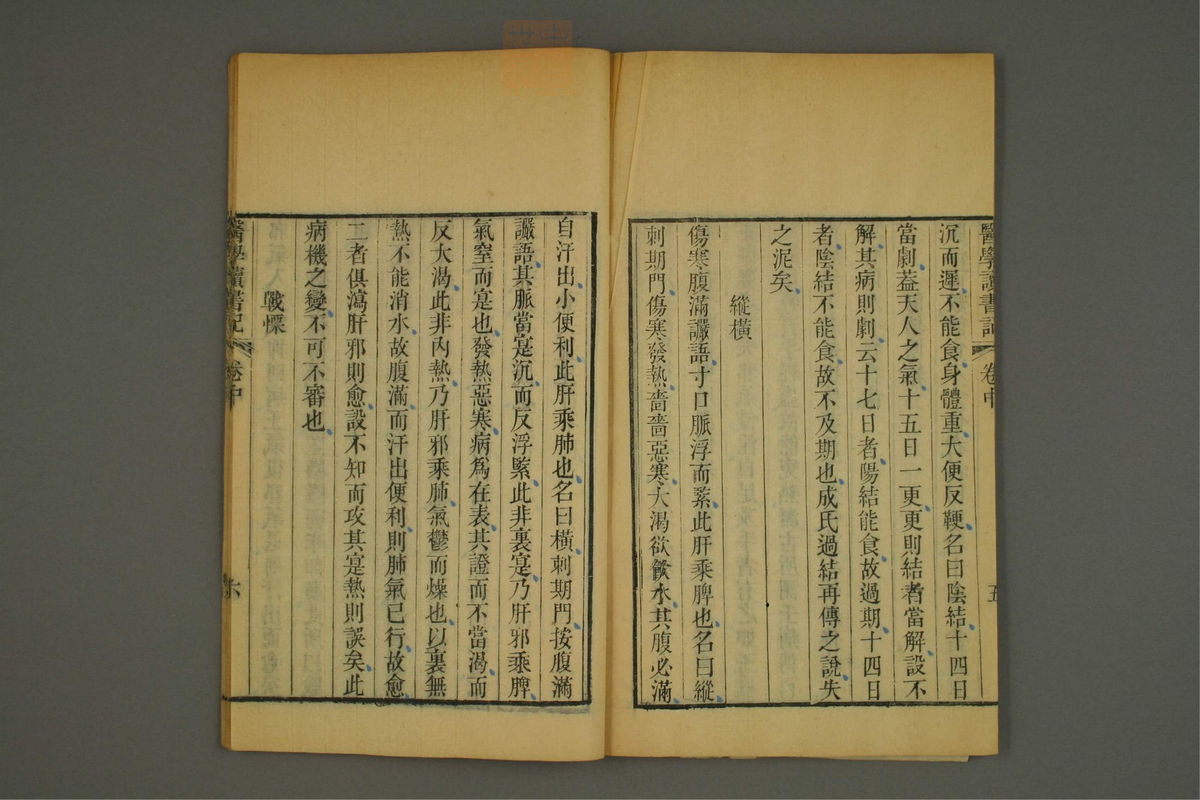 醫學讀書記 卷中 五
沉而遲不能食身體重大便反鞕名曰陰結十四日
當劇葢天人之氣十五日一更更則結者當解設不
解其病則劇云十七日者陽結能食故過期十四日
者陰結不能食故不及期也成氏過結再傳之說失
之泥矣
縱橫
傷寒腹滿讝語寸口脈浮而緊此肝乘脾也名曰縱
刺期門傷寒發熱嗇嗇惡寒大渴欲飮水其腹必滿
自汗出小便利此肝乘肺也名曰橫刺期門按腹滿
讝語其脈當寔沉而反浮緊此非裏寔乃肝邪乘脾
氣窒而寔也發熱惡寒病爲在表其證而不當渴而
反大渴此非內熱乃肝邪乘肺氣鬱而燥也以裏無
熱不能消水故腹滿而汗出便利則肺氣已行故愈
二者俱瀉肝邪則愈設不知而攻其寔熱則誤矣此
病機之變不可不審也
戰慄
醫學讀書記 卷中 六